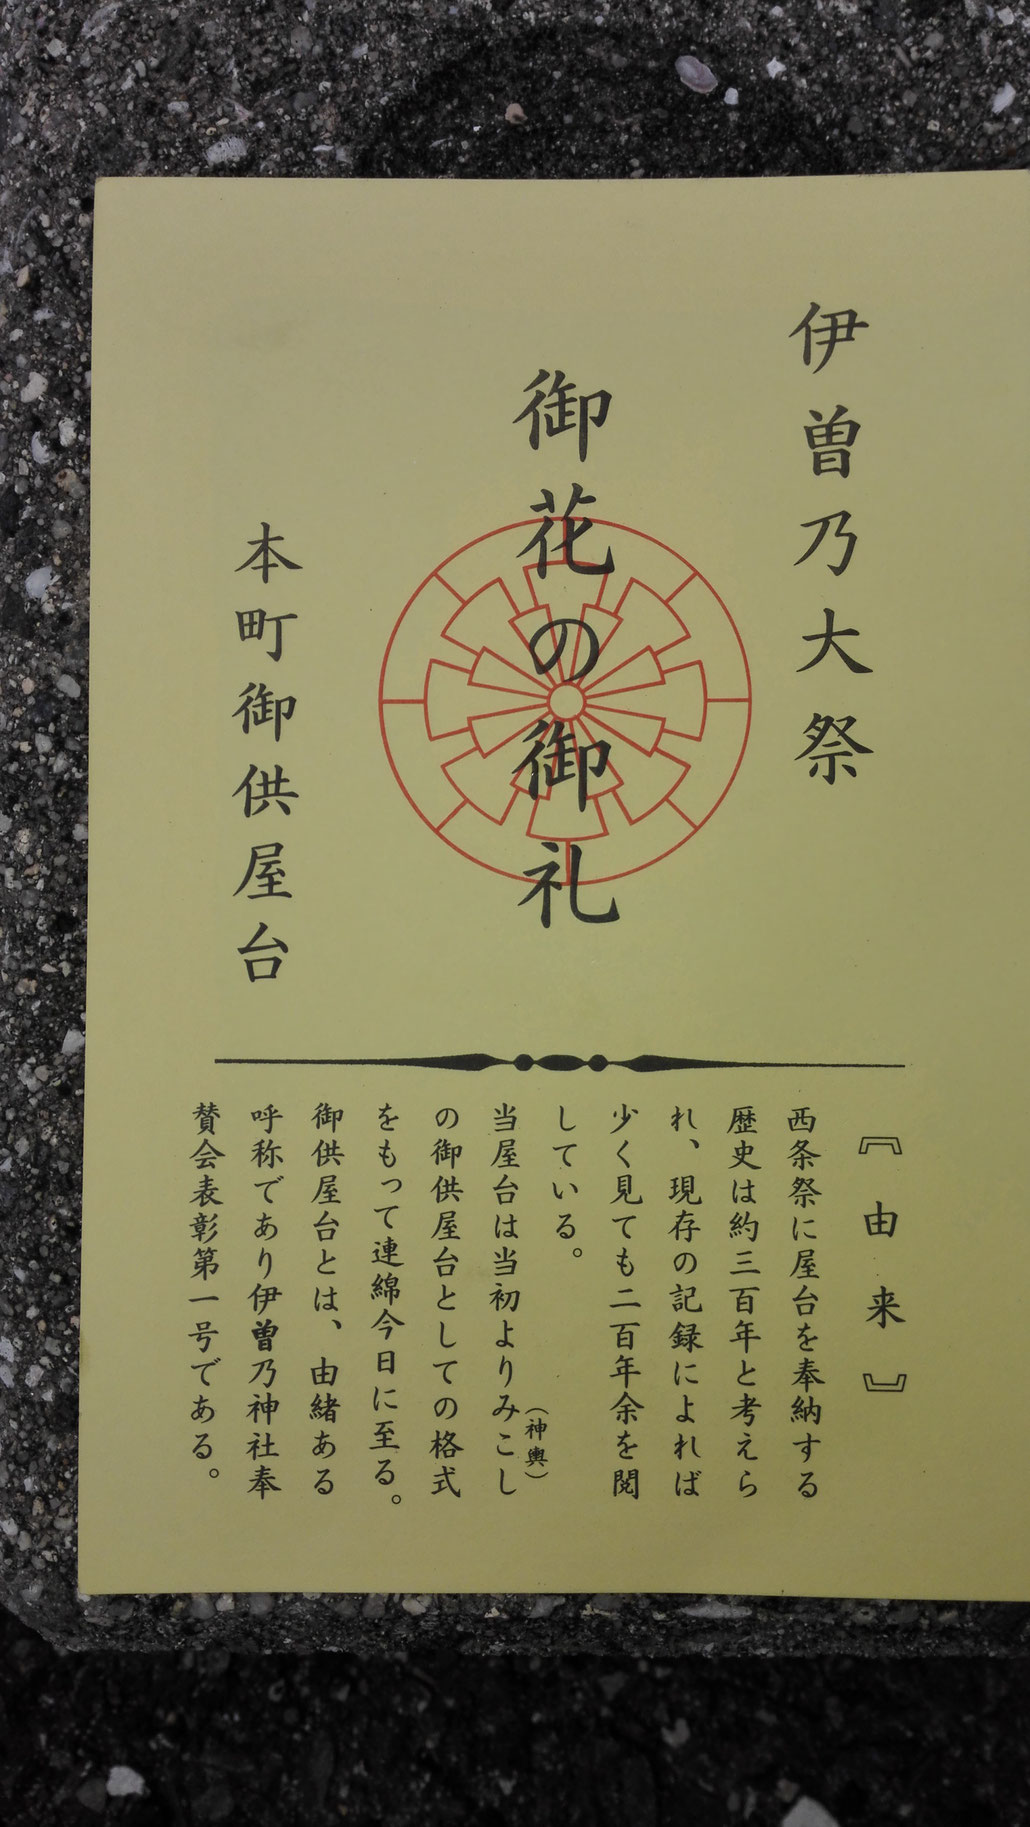 伊曽乃大祭
御花の御礼
本町御供屋台
『由来』
西条祭に屋台を奉納する
歴史は約三百年と考えら
れ、現存の記録によれば
少く見ても二百年余を閲
している。
当屋台は当初よりみこし
（神輿）
の御供屋台としての格式
をもって連綿今日に至る。
御供屋台とは、由緒ある
呼称であり伊曽乃神社奉
賛会表彰第一号である。